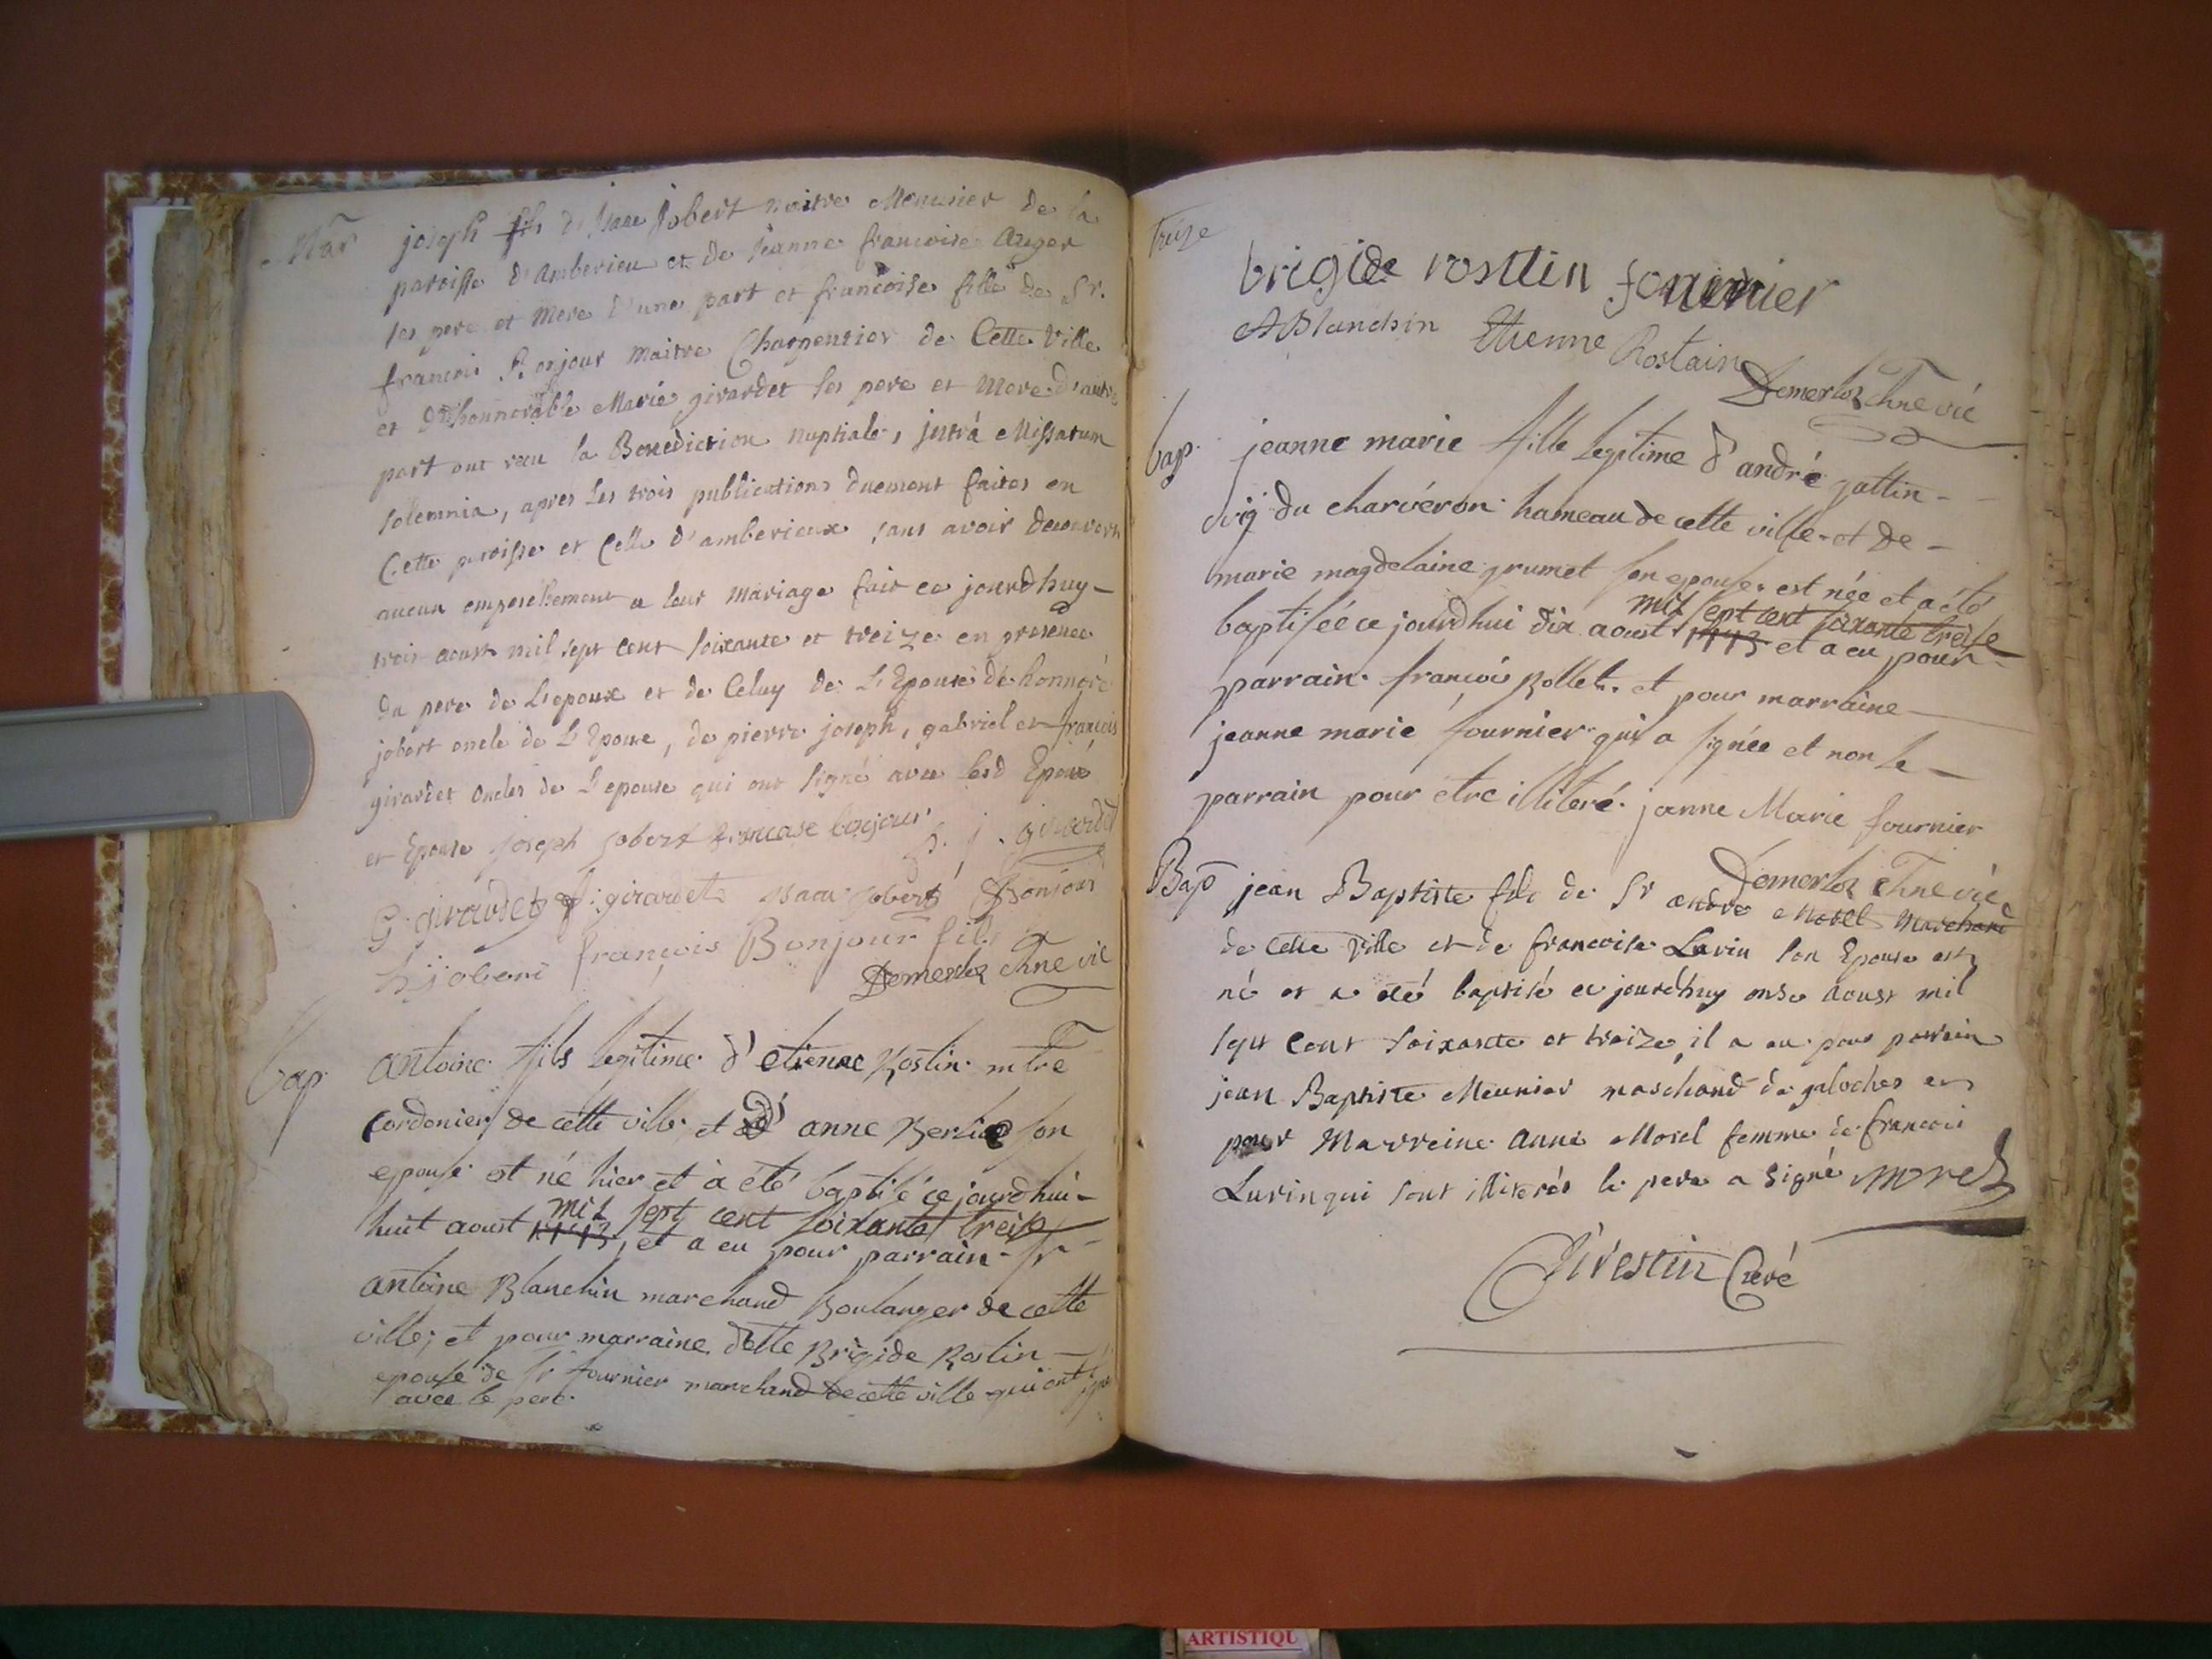 Mar joseph fils d'Isaac Jobert maitre Menuisier de la
paroisse d'amberieu et de Jeanne francoise Auger
ses pere et mere d'une part et francoise fille de Sr.
francois Bonjour maitre Charpentier de Cette Ville
et d'honnorable Marie girardet ses pere et mere d'autre
part ont recu la Benediction nuptiale, intrà Missarum
solemnia, apres les trois publications duement faites en
Cette paroisse et Celle d'amberieux sans avoir decouvert
aucun empeschement a leur mariage fait ce jourd'huy
trois aoust mil sept cent soixante et treize en presence
du pere de L'epoux et de Celuy de L'Epouse de honnoré
jobert oncle de L'Epoux, de pierre joseph, gabriel et françois
girardet oncles de L'epouse qui ont signé avec lesd Epoux
et Epouse joseph jobert francoise bonjour
P. j. girardet
G. girardet f. girardet isaac jobert f Bonjour
h jobert françois Bonjour fils
Demerloz vic
bap antoine fils legitime d'etienne Rostin mtre
cordonier de cette ville et d' anne son
epouse est né hier et à été baptisé ce jourd'hui
mil sept cent soixante treise
huit aoust 1773, et a eu pour parrain sr
antoine Blanchin marchand Boulanger de cette
ville, et pour marraine delle Brigide Rostin
epouse de sr fournier marchand de cette ville qui ont signé
avec le pere.
treize
brigide rostlin fournier
A Blanchin Etienne Rostain
Demerloz vic
bap. jeanne marie fille legitime d'andré gallin
vig du charvéron hameau de cette ville et de
marie magdelaine grumet son epouse est née et a été
mil sept cent soixante treise
baptisée ce jourdhui dix aoust 1773 et a eu pour
parrain françois Rollet et pour marraine
jeanne marie fournier qui a signée et non le
parrain pour etre illiteré. janne Marie fournier
Demerloz vic
Bap jean Baptiste fils de Sr andré Morel Marchand
de Cette Ville et de francoise Lurin son Epouse est
né et a été baptisé ce jourd'huy onse aoust mil
sept cent soixante et treize, il a eu pour parrain
jean Baptiste Meunier marchand de galoches et
pour Marreine anne Morel femme de francois
Lurin qui sont illiterés le pere a signé morel
Givestin Curé
ARTISTIQU